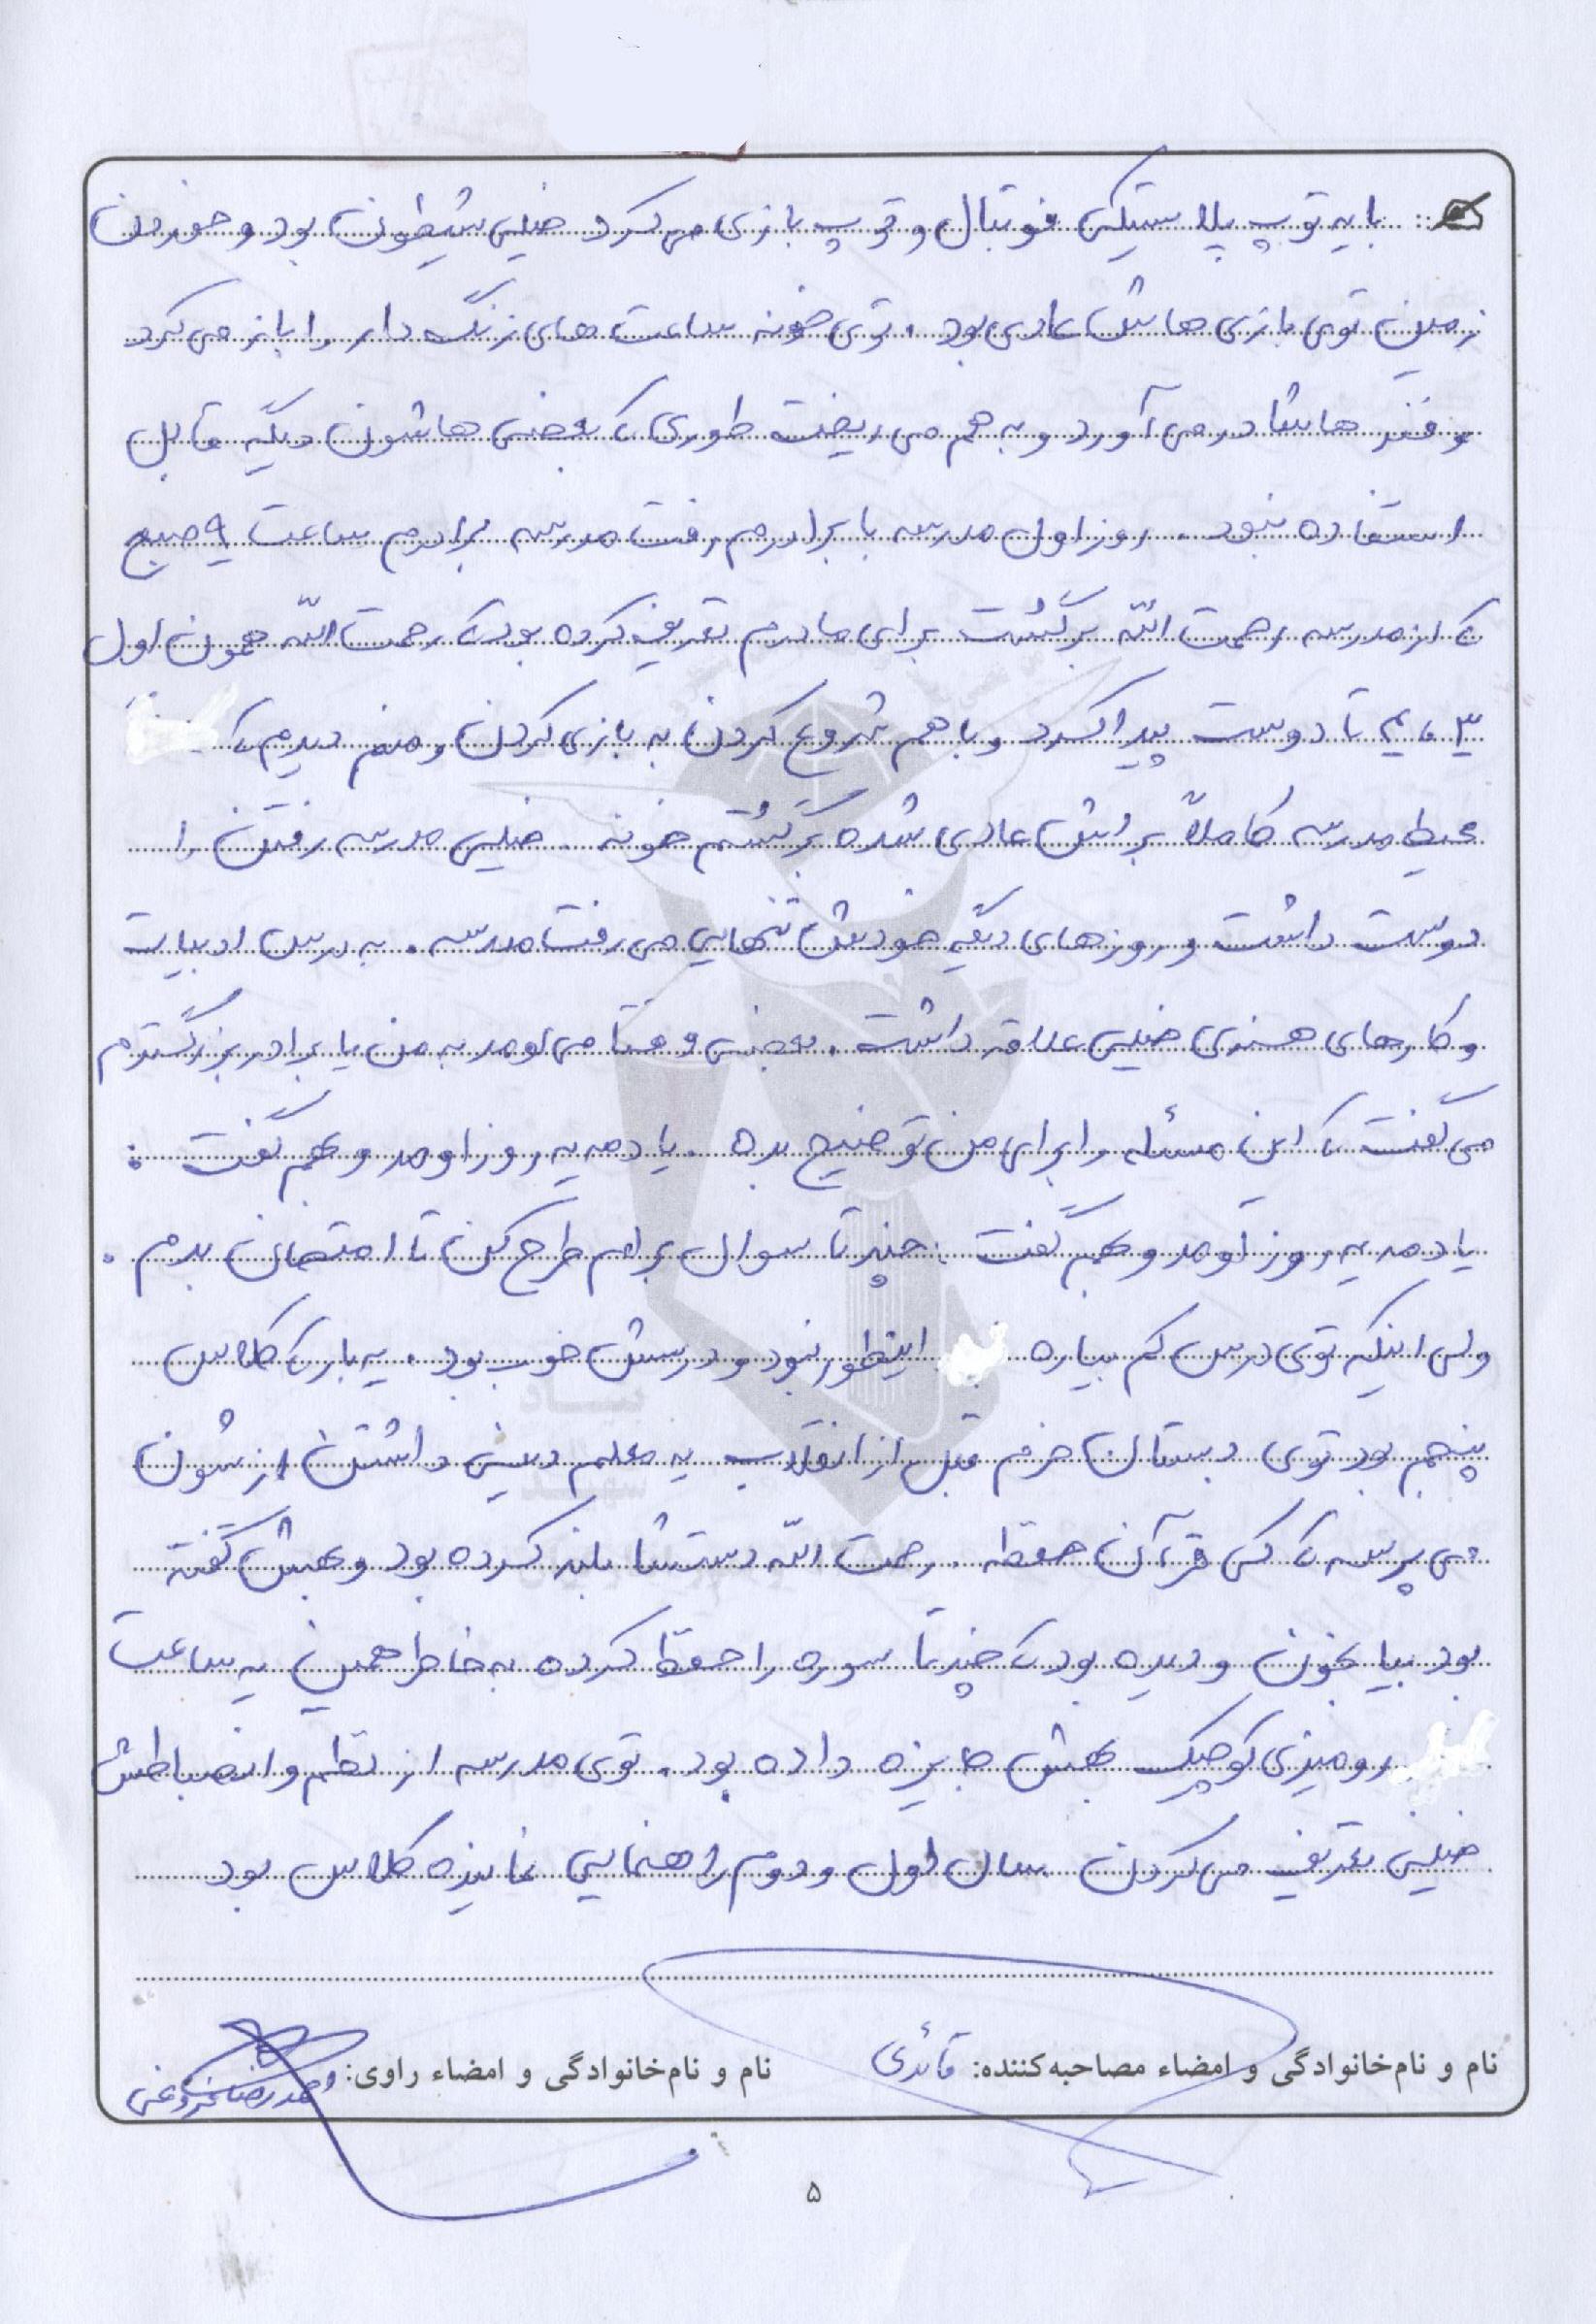 با یه توپ پلاستیکی فوتبال و توپ بازی می کرد خیلی شیطون بود و خوردن
زمین توی بازی هاش عادی بود. توی خونه ساعت های زنگ دار را باز می کرد
و فنر هاشا در می آورد و به هم می ریخت طوری که بعضی هاشون دیگه قابل
استفاده نبود. روز اول مدرسه با برادرم رفت مدرسه برادرم ساعت ۹ صبح
که از مدرسه رحمت الله برگشت برای مادرم تعریف کرده بود که رحمت الله همون اول
۳، ۴ تا دوست پیدا کرد و با هم شروع کردن به بازی کردن و منم دیدم که
محیط مدرسه کاملاً براش عادی شده برگشتم خونه. خیلی مدرسه رفتن را
دوست داشت و روزهای دیگه خودش تنهایی می رفت مدرسه. به درس ادبیات
و کارهای هنری خیلی علاقه داشت. بعضی وقتا می اومد به من یا برادر بزرگترم
می گفت که این مسئله را برای من توضیح بده. یادمه یه روز اومد و بهم گفت :
یادمه یه روز اومد و بهم گفت : چند تا سوال برام طرح کن تا امتحان بدم.
ولی اینکه توی درس کم بیاره اینطور نبود و درسش خوب بود. یه بار که کلاس
پنجم بود توی دبستان خرم قبل از انقلاب یه معلم دینی داشتن ازشون
می پرسه که کی قرآن حفظه. رحمت الله دستشا بلند کرده بود و بهش گفته
بود بیا بخون و دیده بود که چند تا سوره را حفظ کرده به خاطر همین یه ساعت
رومیزی کوچیک بهش جایزه داده بود. توی مدرسه از نظم و انضباطش
خیلی تعریف می کردن سال اول و دوم راهنمایی نماینده کلاس بود
نام و نام‌خانوادگی و امضاء مصاحبه‌کننده: قائدی
نام و نام‌خانوادگی و امضاء راوی:
۵